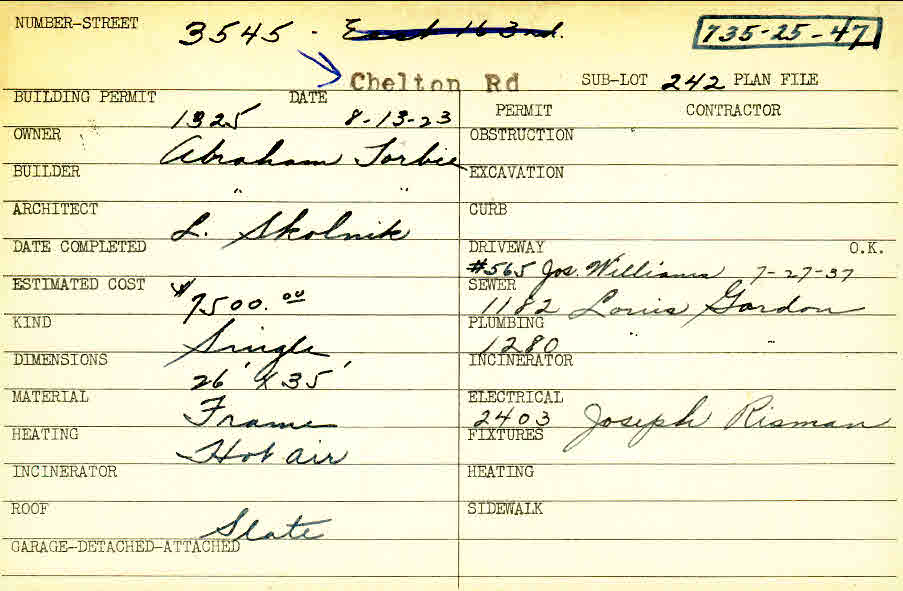 NUMBER-STREET 3545 - East 163rd. 735-25-47
Chelton Rd SUB-LOT 242 PLAN FILE
BUILDING PERMIT 1325 DATE 8-13-23 PERMIT CONTRACTOR
OWNER Abraham Torbie OBSTRUCTION
BUILDER " " EXCAVATION
ARCHITECT L. Skolnik CURB
DATE COMPLETED DRIVEWAY #565 Jos. Williams 7-27-37 O.K.
ESTIMATED COST $7500.00 SEWER 1182 Louis Gordon
KIND Single PLUMBING 1280 " "
DIMENSIONS 26' X 35' INCINERATOR
MATERIAL Frame ELECTRICAL 2403 Joseph Risman
HEATING Hot air FIXTURES
INCINERATOR HEATING
ROOF Slate SIDEWALK
GARAGE-DETACHED-ATTACHED